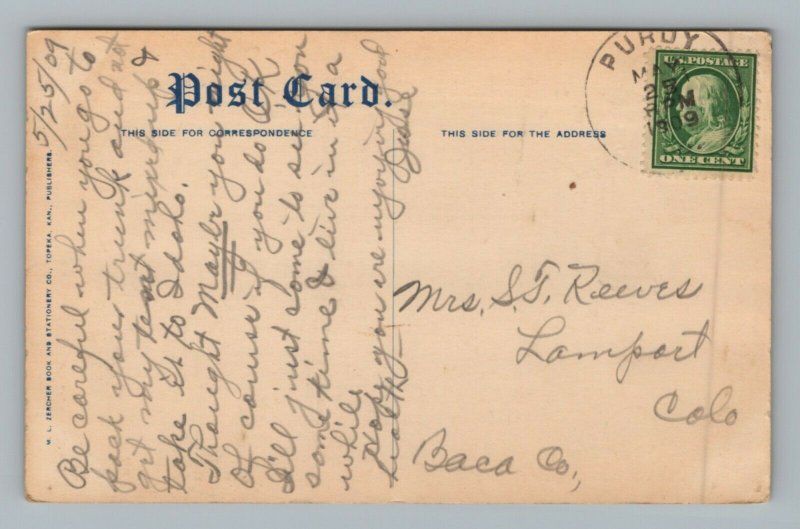 5/25/09
Be careful when you go to
pack your trunk and not
get my tent mixed up &
take it to Idaho.
Thought Maybe you might
Of course if you do O.K.
I'll just come to see you
some time & live in it a
while
Hope you are enjoying good
health
Post Card.
THIS SIDE FOR CORRESPONDENCE
THIS SIDE FOR THE ADDRESS
M. L. ZERCHER BOOK AND STATIONERY CO., TOPEKA, KAN., PUBLISHERS.
PURDY
MAY
25
PM
1909
U.S. POSTAGE
ONE CENT
Mrs. S.T. Reeves
Lamport
Colo
Baca Co.,